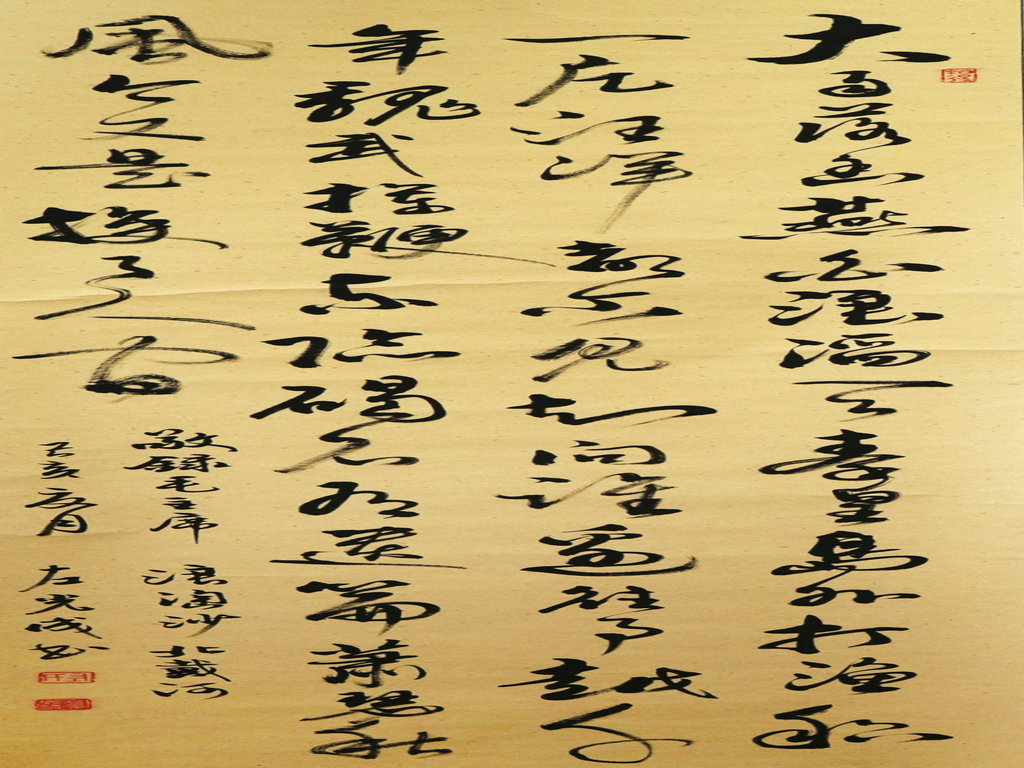 大雨落幽燕白浪滔天秦皇島外打漁船
一片汪洋都不見知向誰邊往事越千
年魏武揮鞭东临碣石有遺篇蕭瑟秋
風今又是換了人間
敬録毛主席 浪淘沙 北戴河
己亥 月 左光成书